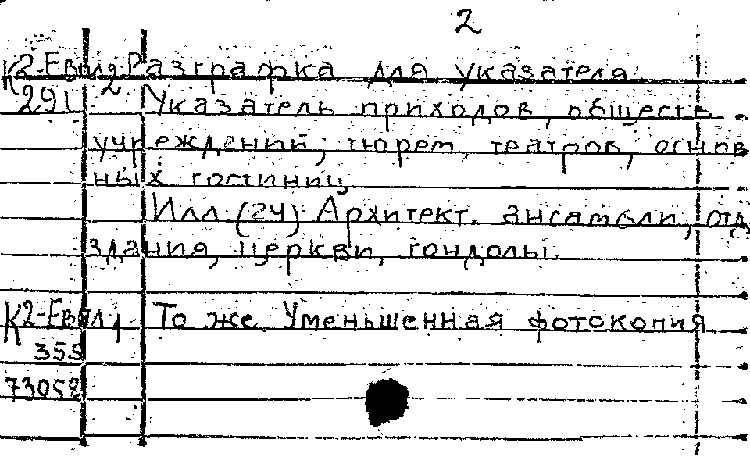 2
К2-Евр.2 Разграфка для указателя.
291 Указатель приходов, обществ.
учреждений, тюрем, театров, основ
ных гостиниц.
Илл.(24): Архитект. ансамбли, отд.
здания, церкви, гондолы.
К2-Евр.1 То же. Уменьшенная фотокопия
355
73052